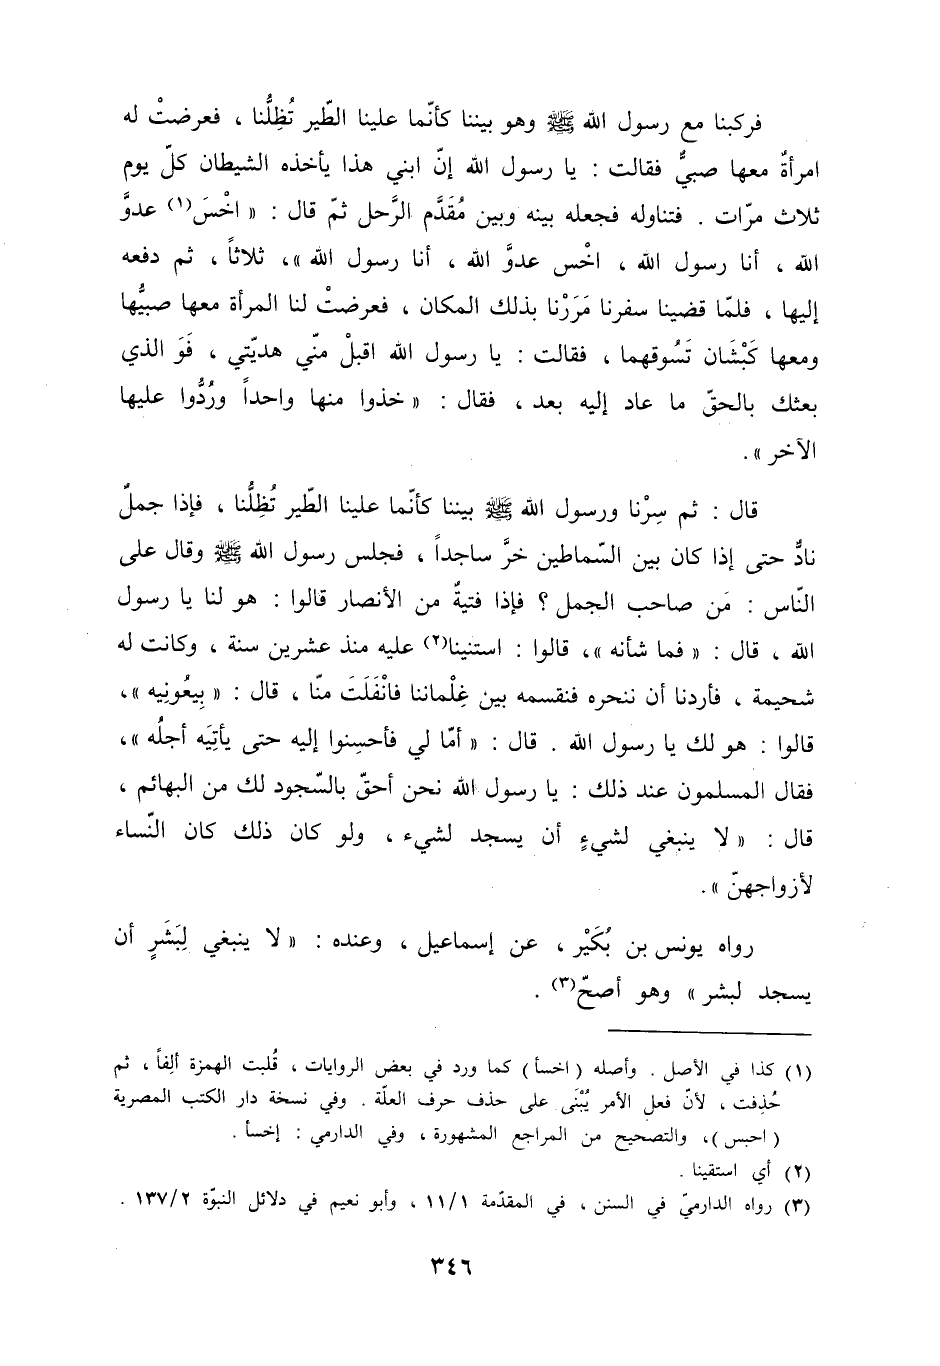 فركبنا مع رسول الله ﷺ وهو بيننا كأنّما علينا الطّير تُظِلُّنا ، فعرضتْ له
امرأةٌ معها صبيٌّ فقالت : يا رسول الله إنّ ابني هذا يأخذه الشيطان كلّ يوم
ثلاث مرّات . فتناوله فجعله بينه وبين مُقَدَّم الرَّحل ثمّ قال : « اخْسَ(١) عدوَّ
الله ، أنا رسول الله ، اخْس عدوَّ الله ، أنا رسول الله »، ثلاثاً ، ثم دفعه
إليها ، فلمّا قضينا سفرنا مَرَرْنا بذلك المكان ، فعرضتْ لنا المرأة معها صبيُّها
ومعها كَبْشَان تَسُوقهما ، فقالت : يا رسول الله اقبلْ منّي هديّتي ، فَوَ الذي
بعثك بالحقّ ما عاد إليه بعد ، فقال : « خذوا منها واحداً ورُدُّوا عليها
الآخر ».
قال : ثم سِرْنا ورسول الله ﷺ بيننا كأنّما علينا الطّير تُظِلُّنا ، فإذا جملٌ
نادٌّ حتى إذا كان بين السّماطين خرَّ ساجداً ، فجلس رسول الله ﷺ وقال على
النّاس : مَن صاحب الجمل ؟ فإذا فتيةٌ من الأنصار قالوا : هو لنا يا رسول
الله ، قال : « فما شأنه »، قالوا : استنينا(٢) عليه منذ عشرين سنة ، وكانت له
شحيمة ، فأردنا أن ننحره فنقسمه بين غِلْماننا فانْفَلَتَ منّا ، قال : « بِيعُونِيه »،
قالوا : هو لك يا رسول الله . قال : « أمّا لي فأحسِنوا إليه حتى يأتِيَه أجلُه »،
فقال المسلمون عند ذلك : يا رسول الله نحن أحقّ بالسّجود لك من البهائم ،
قال : « لا ينبغي لشيءٍ أن يسجد لشيء ، ولو كان ذلك كان النّساء
لأزواجهنّ ».
رواه يونس بن بُكَيْر ، عن إسماعيل ، وعنده : « لا ينبغي لِبَشَرٍ أن
يسجد لبشر » وهو أصحّ(٣) .
(١) كذا في الأصل . وأصله ( اخسأ ) كما ورد في بعض الروايات ، قُلبت الهمزة ألِفاً ، ثم
حُذِفت ، لأنّ فعل الأمر يُبْنَى على حذف حرف العلّة . وفي نسخة دار الكتب المصرية
( احبس )، والتصحيح من المراجع المشهورة ، وفي الدارمي : إخسأ .
(٢) أي استقينا .
(٣) رواه الدارميّ في السنن ، في المقدّمة ١١/١ ، وأبو نعيم في دلائل النبوّة ١٣٧/٢ .
٣٤٦